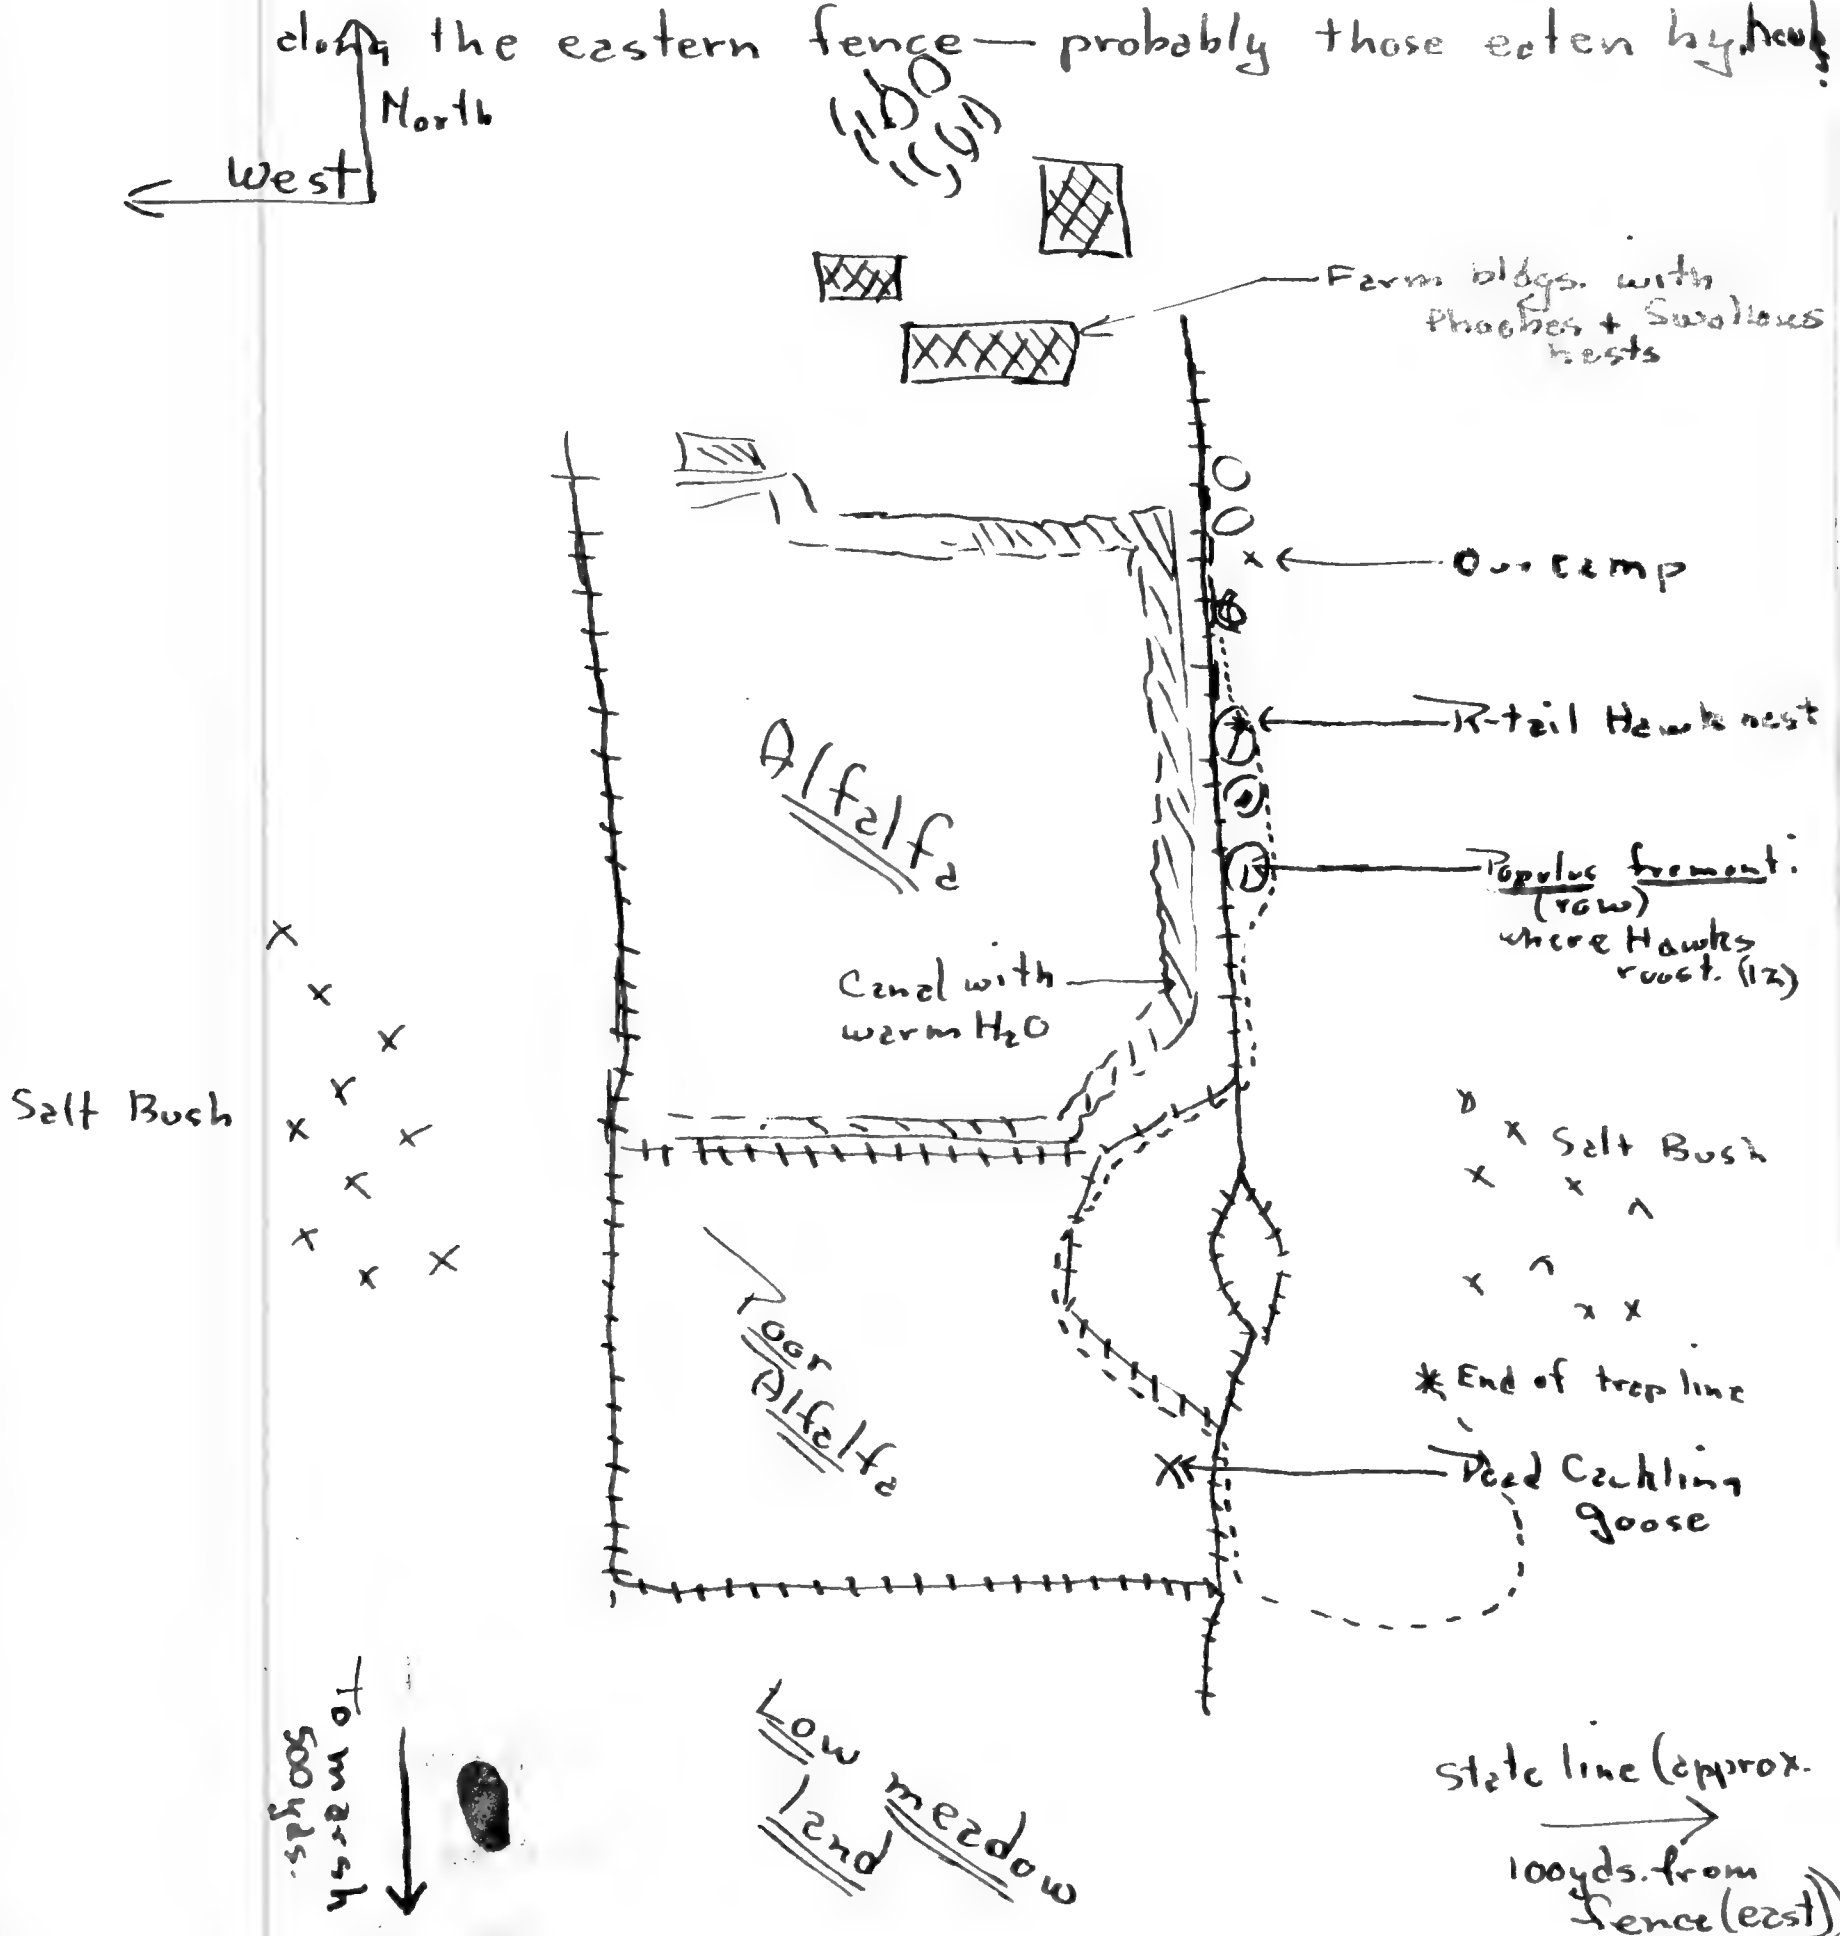 along the eastern fence — probably those eaten by hawks.
North
West
Farm bldgs. with
Phoebes + Swallows
nests
Our camp
R-tail Hawk nest
Alfalfa
Populus fremonti
(row)
where Hawks
roost. (12)
Canal with
warm H2O
Salt Bush
Salt Bush
Poor
Alfalfa
* End of trap line
Dead Cackling
goose
To marsh
500 yds.
Low meadow
land
State line (approx.
100 yds. from
fence (east))